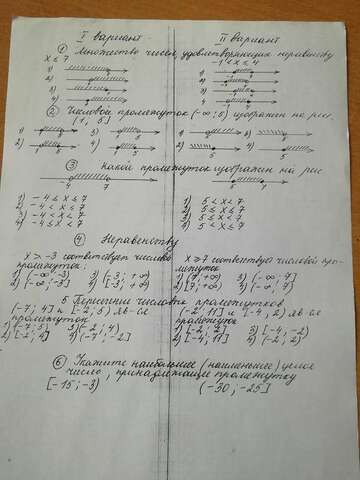 I вариант II вариант
① Множество чисел, удовлетворяющих неравенству
x ≤ 7 -1 < x ≤ 4
1) 1)
2) 2)
3) 3)
4) 4
② Числовой промежуток (-∞; 5) изображен на рис
[1, 5]
1) 3) 1) 3)
2) 4) 2) 4)
1 5 1 5 5 5
③ Какой промежуток изображен на рис
-4 7 5 7
1) -4 ≤ x ≤ 7 1) 5 < x < 7
2) -4 < x ≤ 7 2) 5 ≤ x ≤ 7
3) -4 < x < 7 3) 5 ≤ x < 7
4) -4 ≤ x < 7 4) 5 < x ≤ 7
④ Неравенству
x > -3 соответствует числовой x ≥ 7 соответствует числовой про-
промежуток: межуток
1) (-∞; -3) 3) (-3; +∞) 1) (7; +∞) 3) (-∞; 7]
2) (-∞; -3] 4) [-3; +∞) 2) [7; +∞) 4) (-∞; 7)
5 Пересечением числовых промежутков
[-7; 4] и [-2; 5) яв-ся [-2; 11] и [-4, 2) яв-ся
промежуток промежуток
1) [-7; 5) 3) (-2; 4) 1) [-2; 2) 3) [-4; -2)
2) [-2; 4] 4) [-7; -2] 2) [-4; 11] 4) (-2; 2)
⑥ Укажите наибольшее (наименьшее) целое
число, принадлежащее промежутку
[-15; -3) (-30; -25]